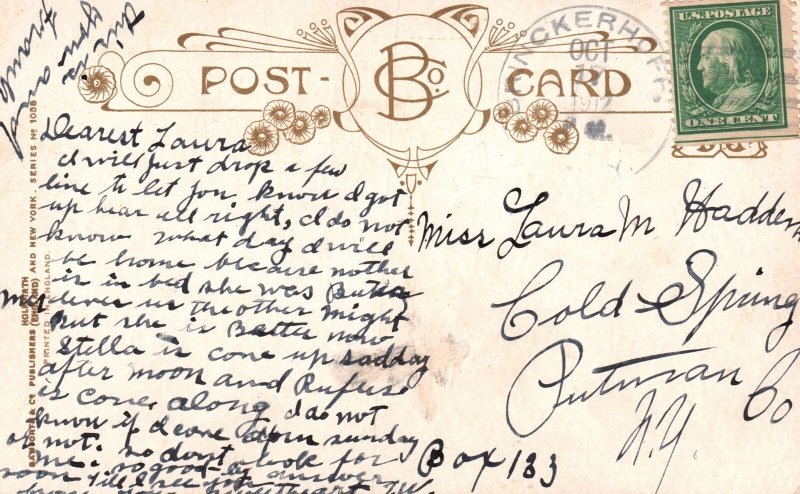 POST- BCo CARD
BRINCKERHOFF
OCT
1912
U.S. POSTAGE
ONE CENT
BAMFORTH & CO PUBLISHERS (ENGLAND) AND NEW YORK. SERIES NO 1058
HOLMFIRTH
PRINTED IN ENGLAND
Dearest Laura
I will just drop a few
line to let you know I got
up hear all right, I do not
know what day I will
be home because mother
is in bed she was
the other night
but she is Better now
Stella is come up sadday
after moon and Rufuse
is come along I do not
know if I come down sunday
or not. so dont look for
me. so good-by answer
soon till I see you
Miss Laura M Hadden
Cold Spring
Putnam Co
N.Y.
Box 133